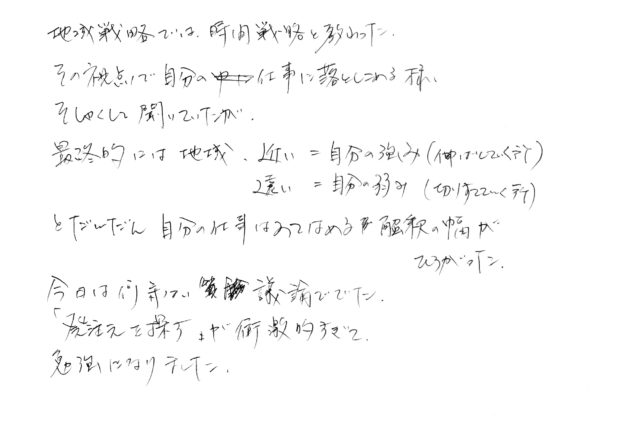 地域戦略では、時間戦略と教わった。
その視点で自分の仕事に落としこめる様、
そしゃくして聞いていたが、
最終的には地域、近い = 自分の強み (伸ばしていく所)
遠い = 自分の弱み (切りすてていく所)
とだんだん自分の仕事にあてはめる解釈の幅が
ひろがった。
今日は何 議論ででた、
「発注元を探す」が衝撃的すぎて、
勉強になりました。